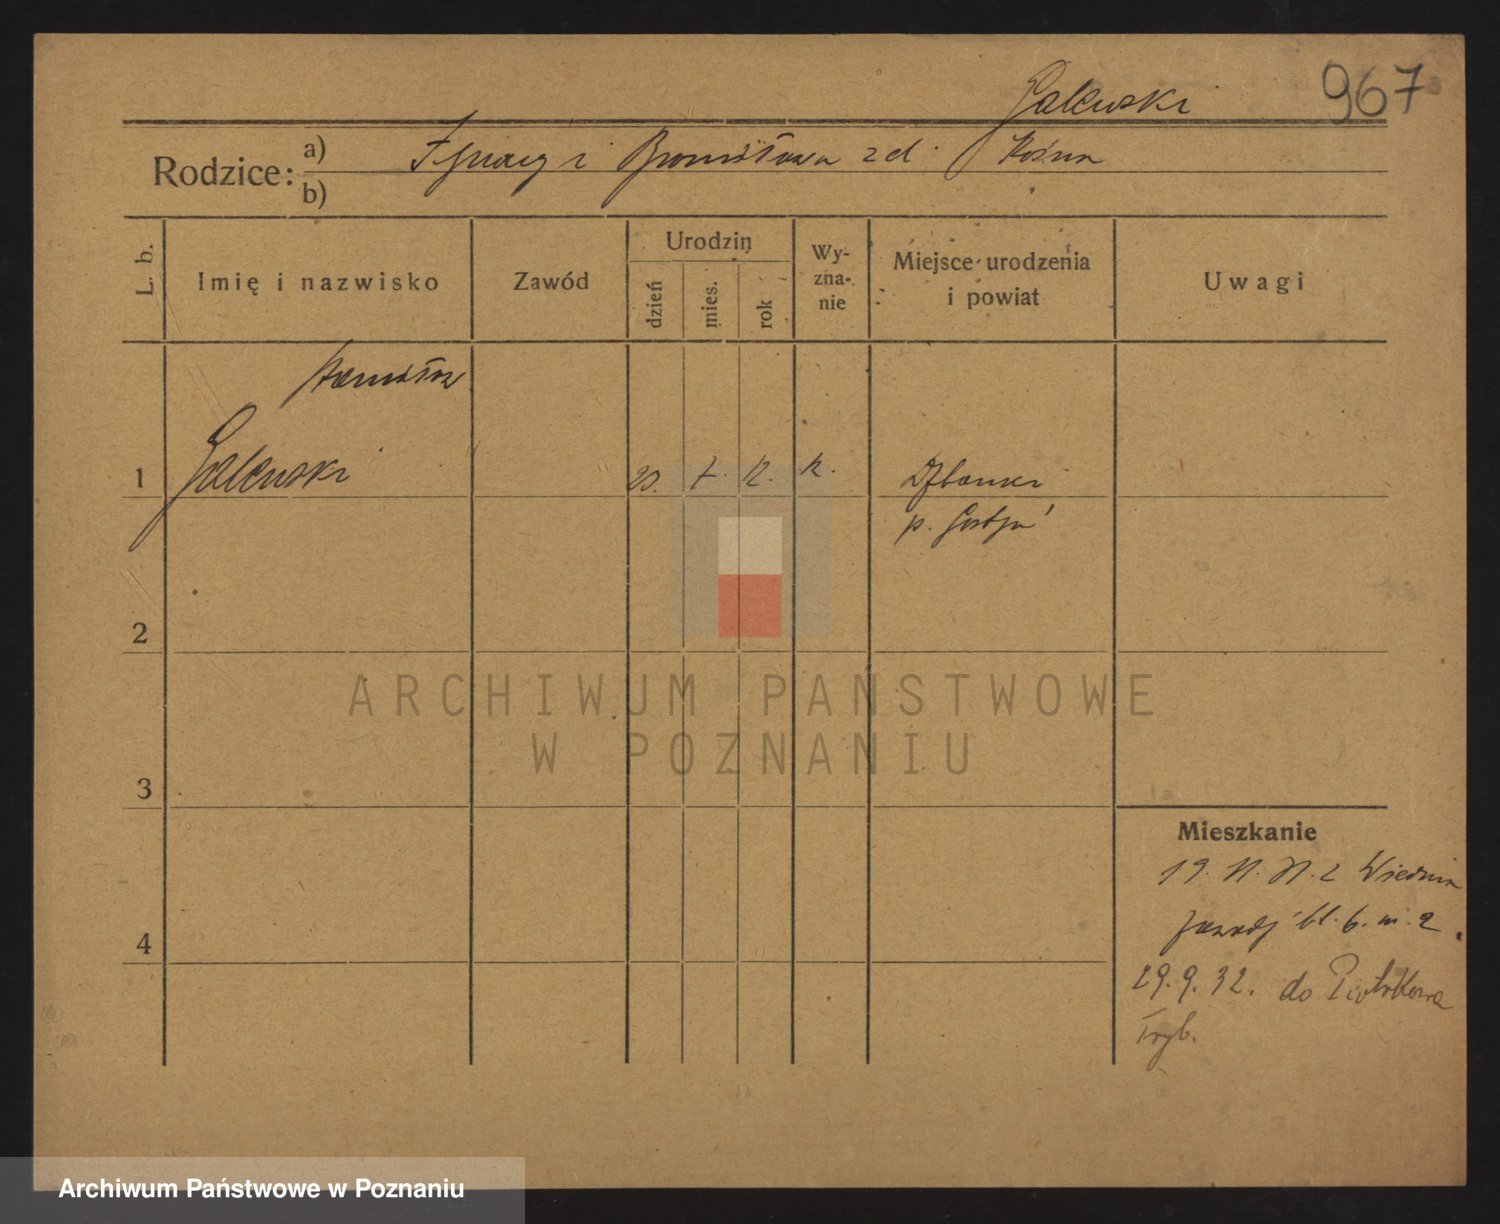 Galewski 967
Rodzice: a) Ignacy i Bronisława zd. Kośna
b)
L. b. Imię i nazwisko Zawód Urodzin dzień mies. rok Wy-zna-nie Miejsce urodzenia i powiat Uwagi
Stanisław
1 Galewski 7. 12. k. Dzbanki
p. Gostyń
2
3
Mieszkanie
19. Wiednia
bl. 6. m. 2.
4
29. 9. 32. do Piotrkowa
Tryb.
ARCHIWUM PAŃSTWOWE
W POZNANIU
Archiwum Państwowe w Poznaniu